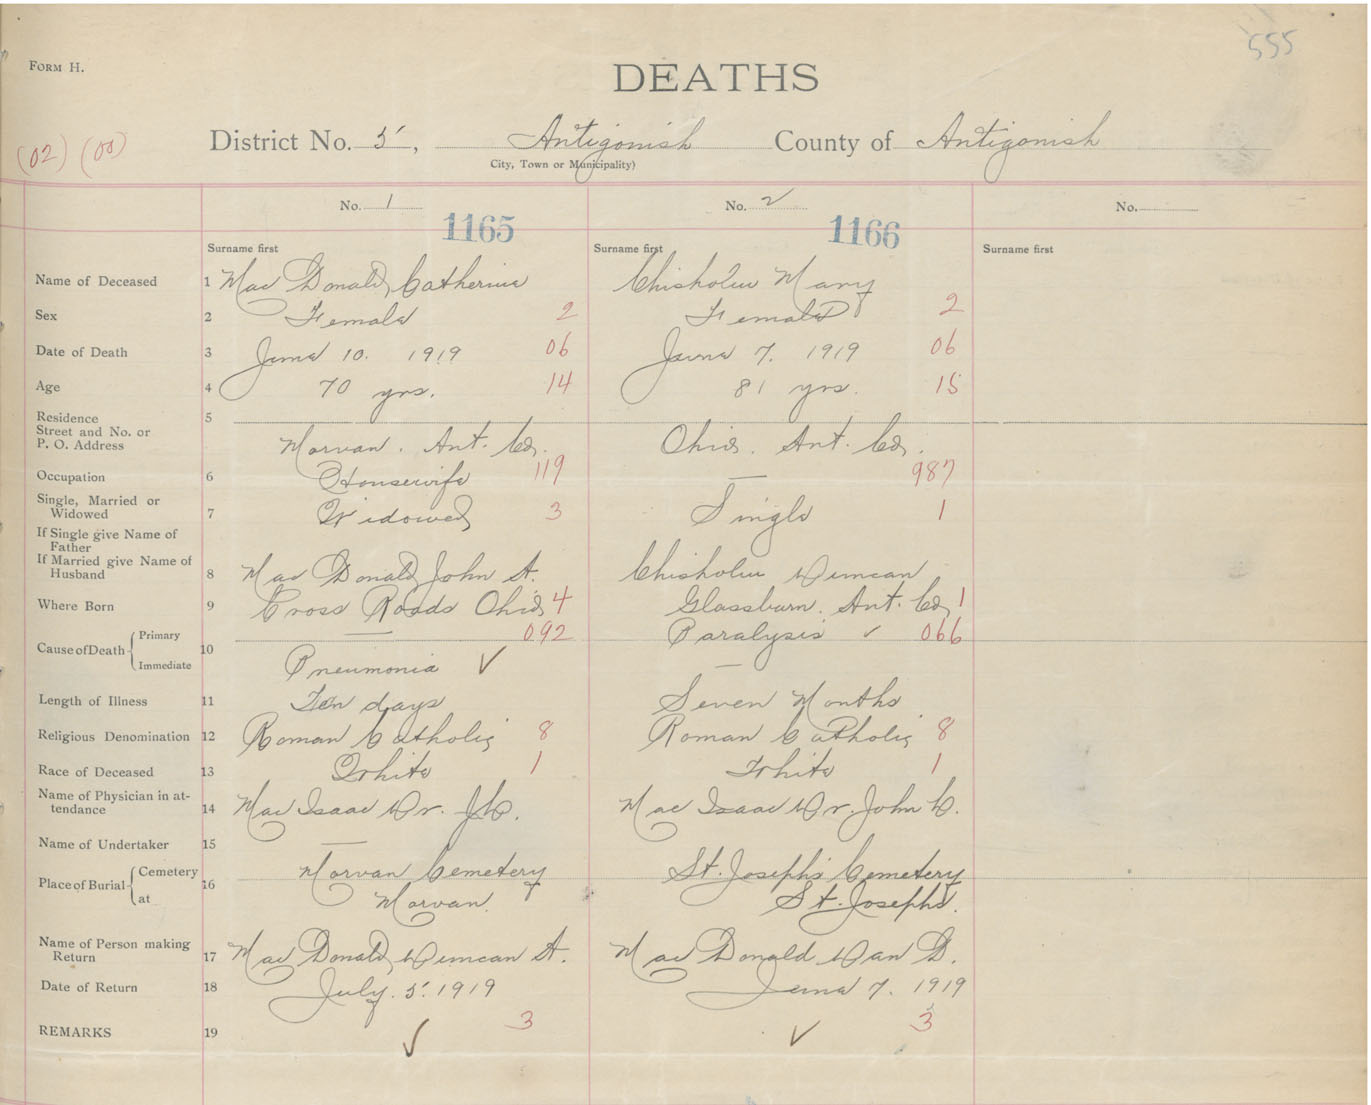 555
FORM H.
DEATHS
(02) (00)
District No. 5, Antigonish County of Antigonish
City, Town or Municipality)
No. 1 No. 2 No.
1165 1166
Surname first Surname first Surname first
Name of Deceased 1 Mac Donald, Catherine Chisholm Mary
Sex 2 Female 2 Female 2
Date of Death 3 June 10. 1919 06 June 7. 1919 06
Age 4 70 yrs. 14 81 yrs. 15
Residence 5
Street and No. or
P. O. Address Morvan. Ant. Co. Ohio. Ant. Co.
Occupation 6 Housewife 119 — 987
Single, Married or
Widowed 7 Widowed 3 Single 1
If Single give Name of
Father
If Married give Name of
Husband 8 Mac Donald John A. Chisholm Duncan
Where Born 9 Cross Roads Ohio 4 Glassburn. Ant. Co. 1
Cause of Death Primary 10 — 092 Paralysis ✓ 066
Immediate Pneumonia ✓ —
Length of Illness 11 Ten days Seven Months
Religious Denomination 12 Roman Catholic 8 Roman Catholic 8
Race of Deceased 13 White 1 White 1
Name of Physician in at-
tendance 14 Mac Isaac Dr. J.C. Mac Isaac Dr. John C.
Name of Undertaker 15 —
Place of Burial Cemetery 16 Morvan Cemetery St. Joseph's Cemetery
at Morvan. St. Josephs.
Name of Person making
Return 17 Mac Donald, Duncan A. Mac Donald Dan D.
Date of Return 18 July. 5. 1919 June 7. 1919
REMARKS 19 ✓ 3 ✓ 3